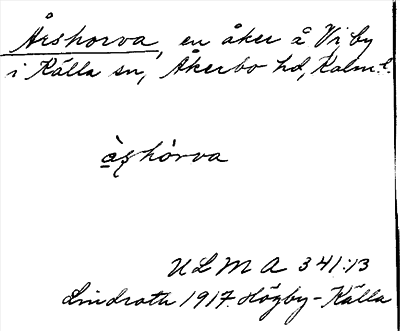 Årshorva, en åker å Vi, by
i Källa sn, Åkerbo hd, Kalm. l.
àʂhòrva
ULMA 341:13
Lindroth 1917. Högby-Källa